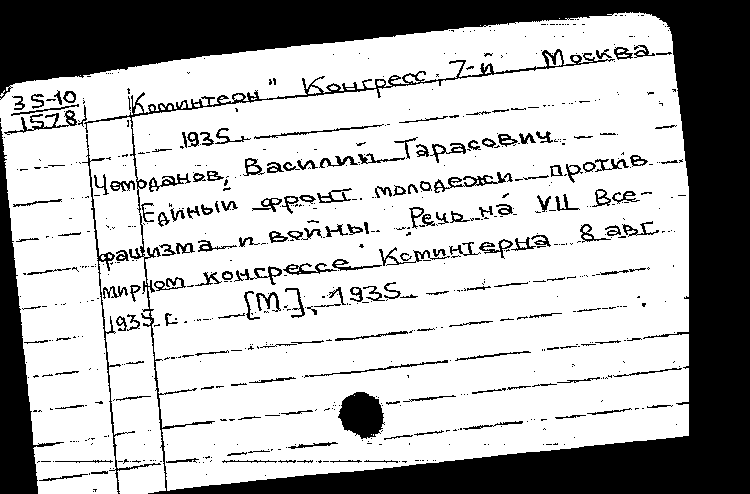 35-10
1578
"Коминтерн" Конгресс, 7-й Москва
1935.
Чемоданов, Василий Тарасович.
Единый фронт молодежи против
фашизма и войны. Речь на VII Все-
мирном конгрессе Коминтерна 8 авг.
1935 г. [М.], 1935.